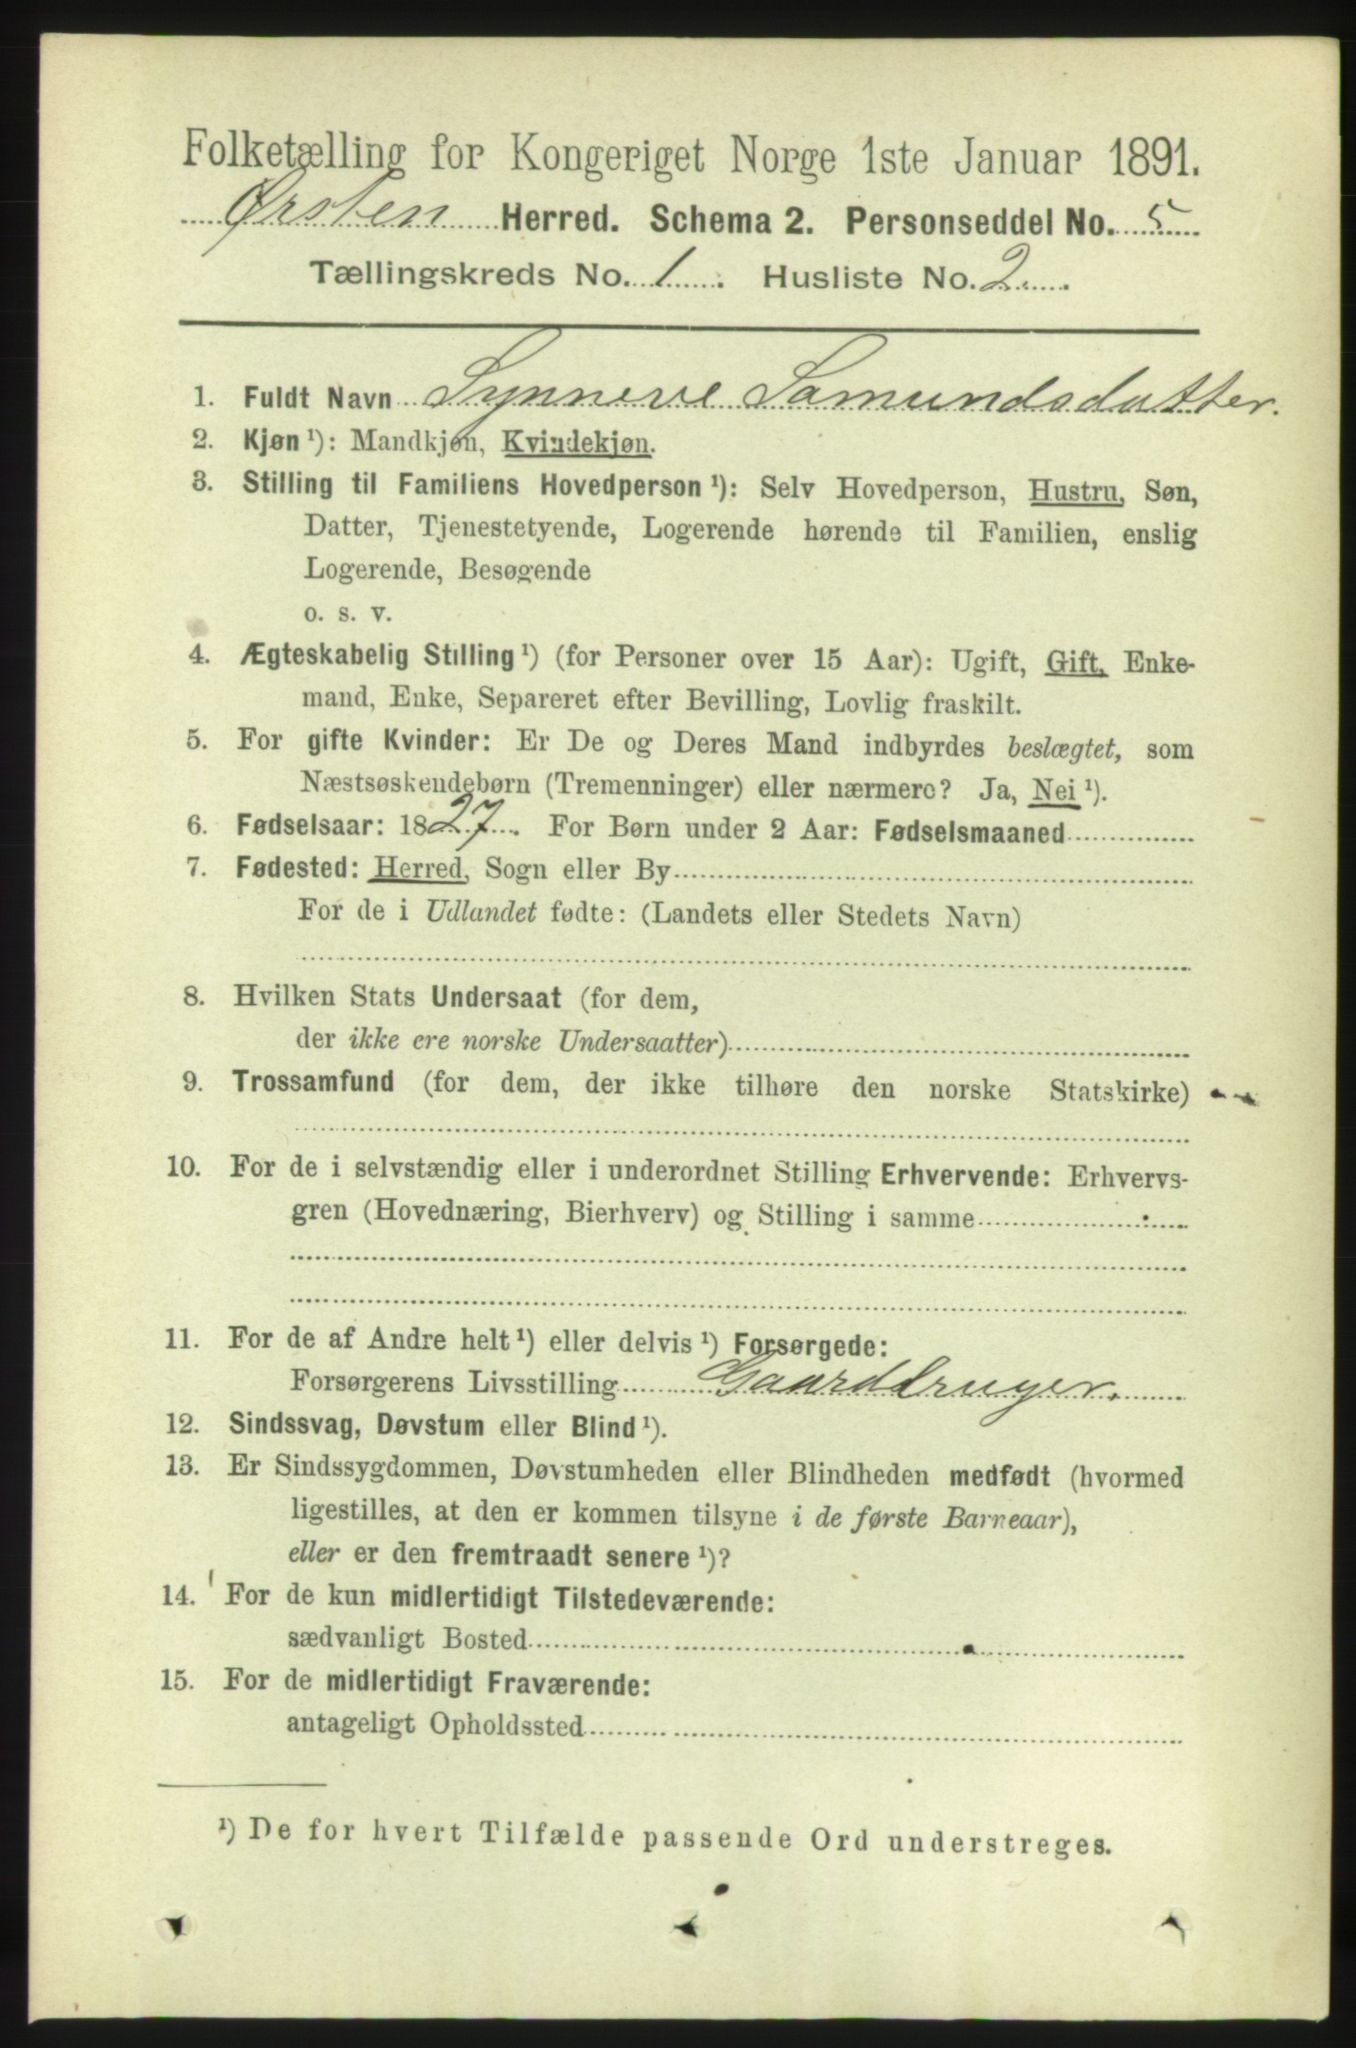 Folketælling for Kongeriget Norge 1ste Januar 1891.
Ørsten Herred. Schema 2. Personseddel No. 5
Tællingskreds No. 1. Husliste No. 2.
1. Fuldt Navn Synneve Samundsdatter.
2. Kjøn ¹): Mandkjøn, Kvindekjøn.
3. Stilling til Familiens Hovedperson ¹): Selv Hovedperson, Hustru, Søn,
Datter, Tjenestetyende, Logerende hørende til Familien, enslig
Logerende, Besøgende
o. s. v.
4. Ægteskabelig Stilling ¹) (for Personer over 15 Aar): Ugift, Gift, Enke-
mand, Enke, Separeret efter Bevilling, Lovlig fraskilt.
5. For gifte Kvinder: Er De og Deres Mand indbyrdes beslægtet, som
Næstsøskendebørn (Tremenninger) eller nærmere? Ja, Nei ¹).
6. Fødselsaar: 1827. For Børn under 2 Aar: Fødselsmaaned
7. Fødested: Herred, Sogn eller By
For de i Udlandet fødte: (Landets eller Stedets Navn)
8. Hvilken Stats Undersaat (for dem,
der ikke ere norske Undersaatter)
9. Trossamfund (for dem, der ikke tilhøre den norske Statskirke)
10. For de i selvstændig eller i underordnet Stilling Erhvervende: Erhvervs-
gren (Hovednæring, Bierhverv) og Stilling i samme
11. For de af Andre helt ¹) eller delvis ¹) Forsørgede:
Forsørgerens Livsstilling Gaardbruger.
12. Sindssvag, Døvstum eller Blind ¹).
13. Er Sindssygdommen, Døvstumheden eller Blindheden medfødt (hvormed
ligestilles, at den er kommen tilsyne i de første Barneaar),
eller er den fremtraadt senere ¹)?
14. For de kun midlertidigt Tilstedeværende:
sædvanligt Bosted
15. For de midlertidigt Fraværende:
antageligt Opholdssted
¹) De for hvert Tilfælde passende Ord understreges.